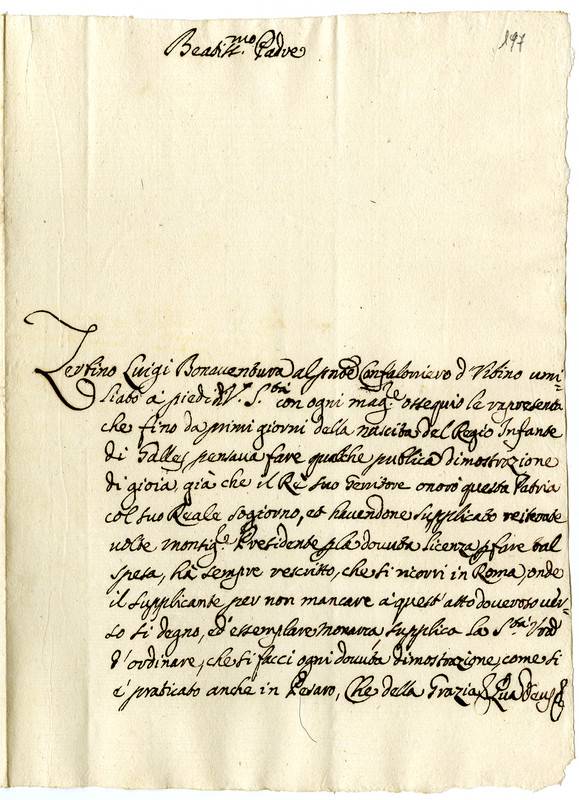 Beatiss.mo Padre
197
Zerfino Luigi Bonaventura al pnte Confaloniero d'Vrbino umi=
liato a' piedi di V. S.tà con ogni mag.e ossequio le rapresenta
che fino da primi giorni della nascita del Regio Infante
di Galles pensava fare qualche publica dimostrazione
di gioia, già che il Rè suo Genitore onorò questa Patria
col suo Reale sogiorno, et havendone supplicato reiterate
volte monsig.e Presidente p la dovuta licenza p fare tal
spesa, hà sempre rescritto, che si ricorri in Roma, onde
il supplicante per non mancare à quest'atto doveroso ver=
so si degno, ed' essemplare Monarca supplica la S.tà Vra
d'ordinare, che si facci ogni dovuta dimostrazione, come si
e' praticato anche in Pesaro, Che della Grazia Qua Deus